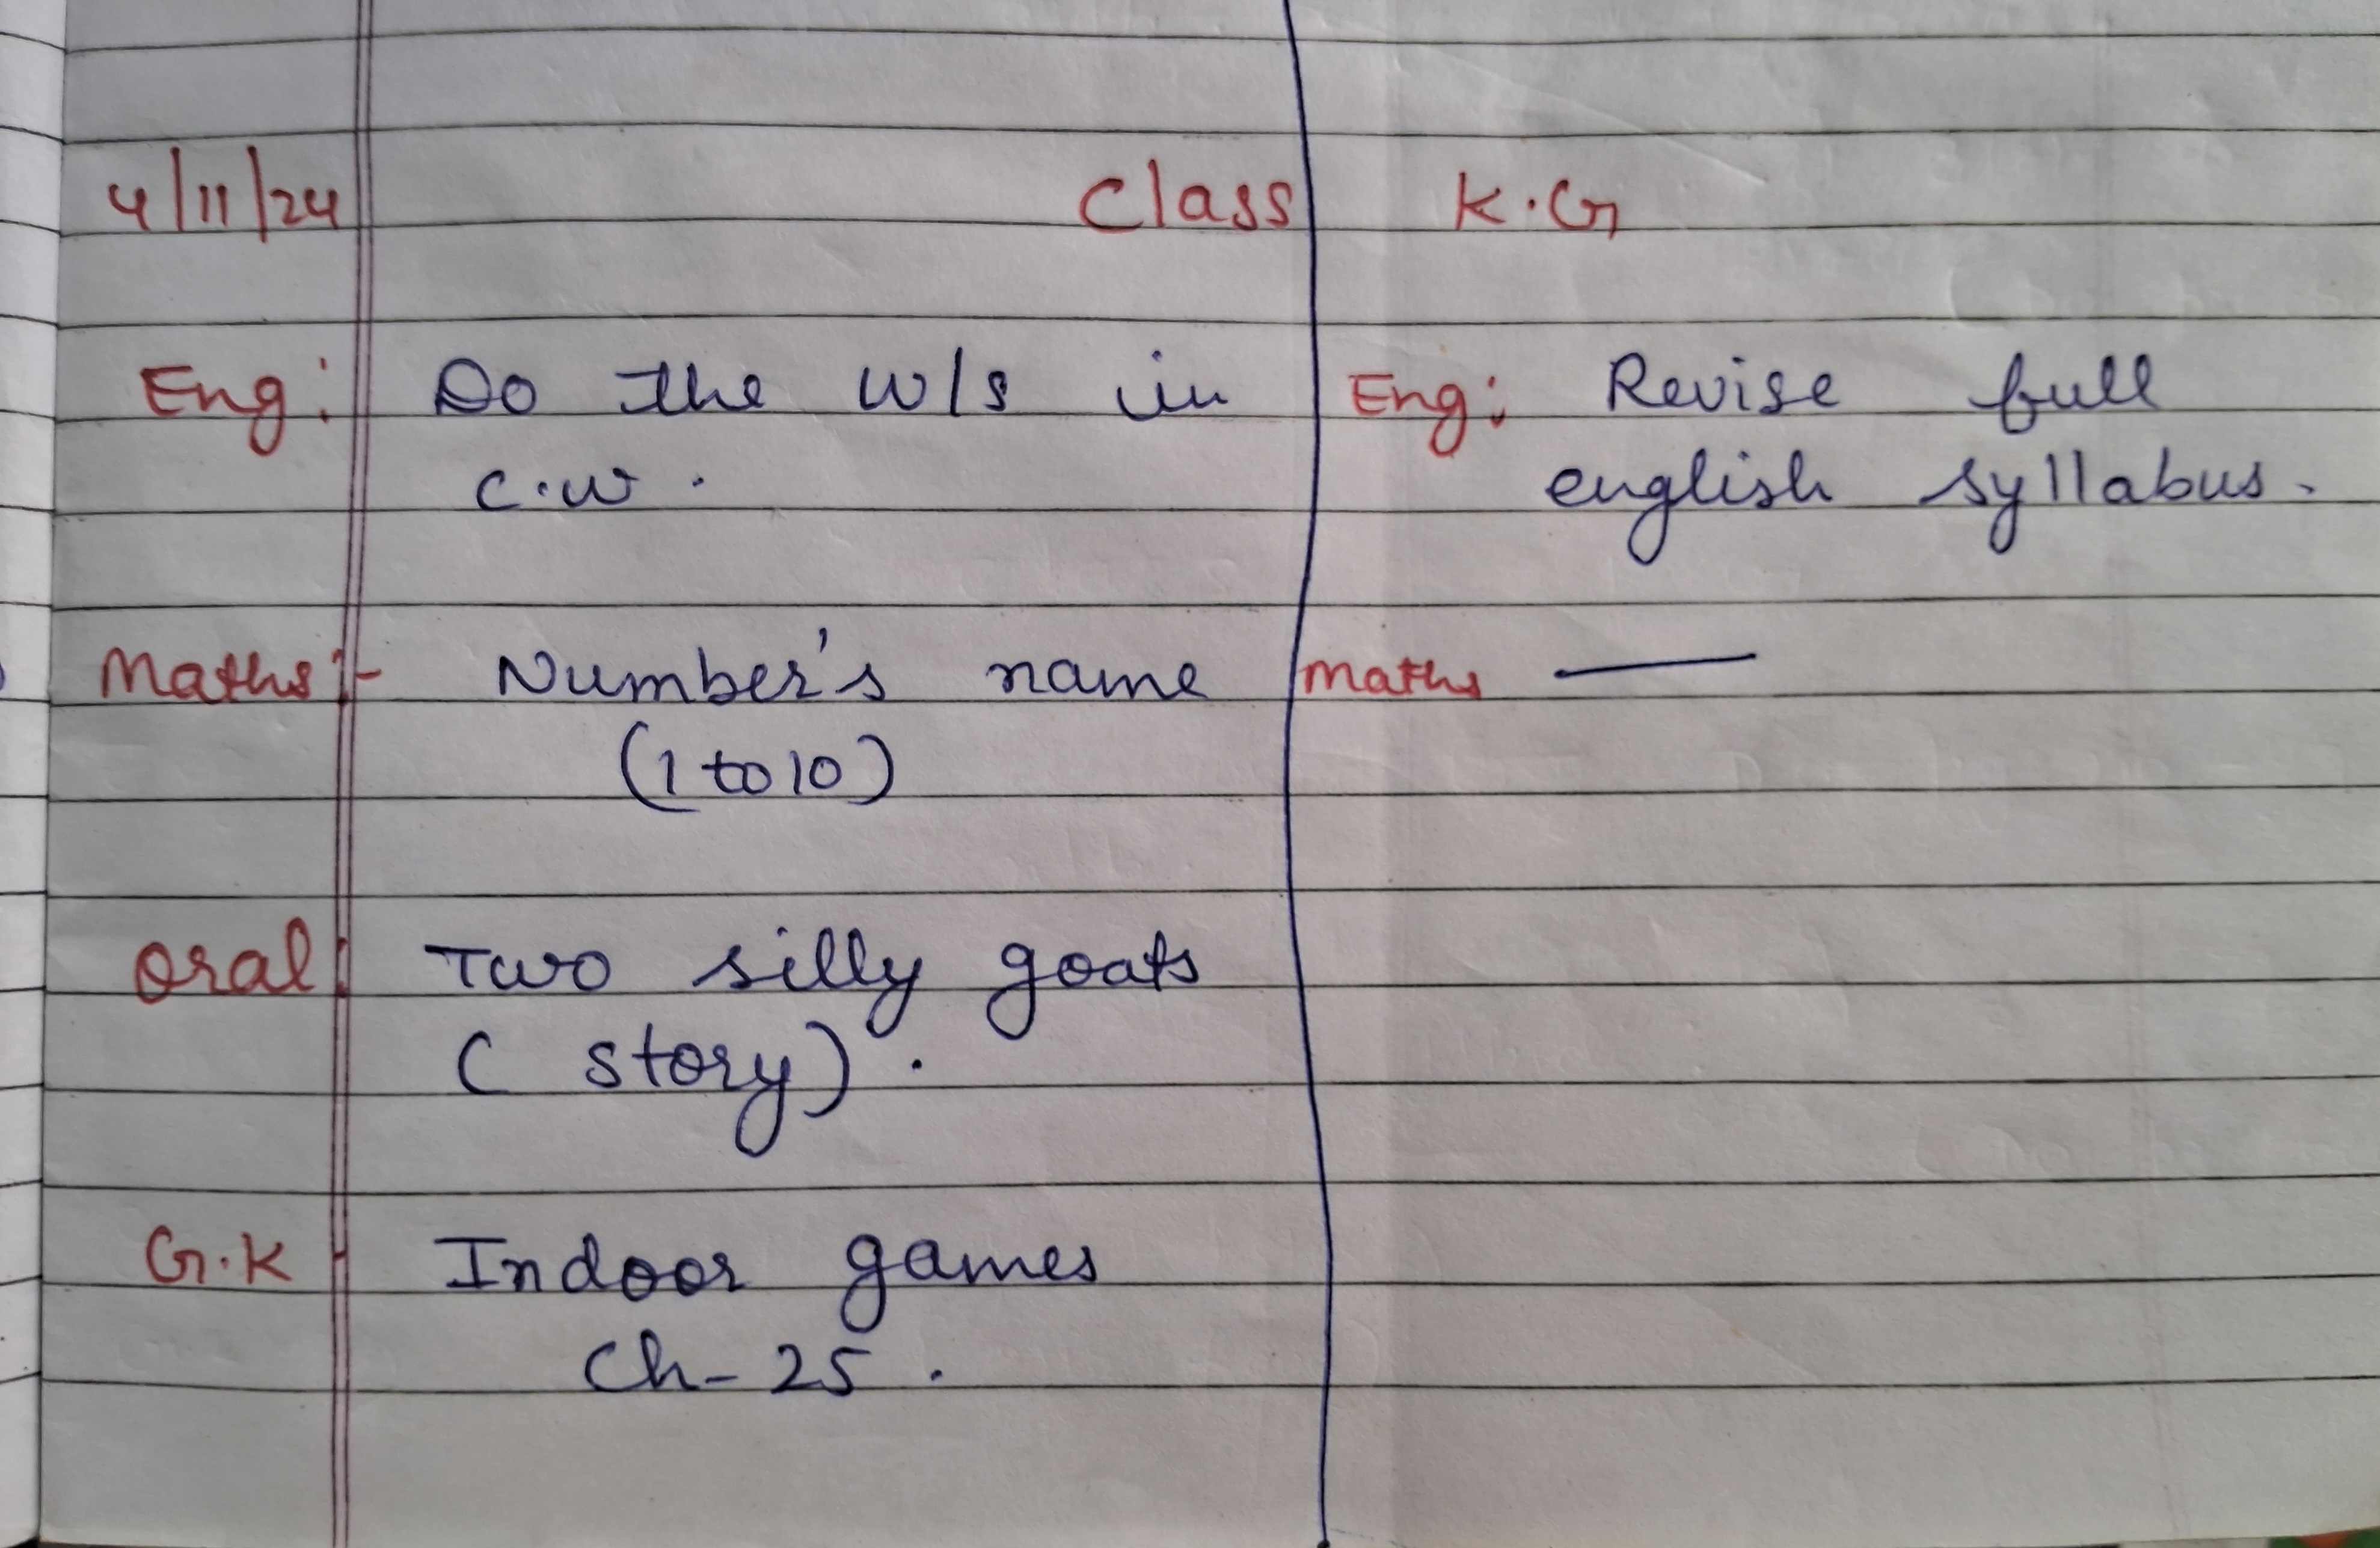 4/11/24 Class K.G
Eng: Do the w/s in
c.w.
Maths:- Number's name
(1 to 10)
Oral: Two silly goats
(story).
G.K - Indoor games
Ch-25.
Eng: Revise full
english syllabus.
Maths —